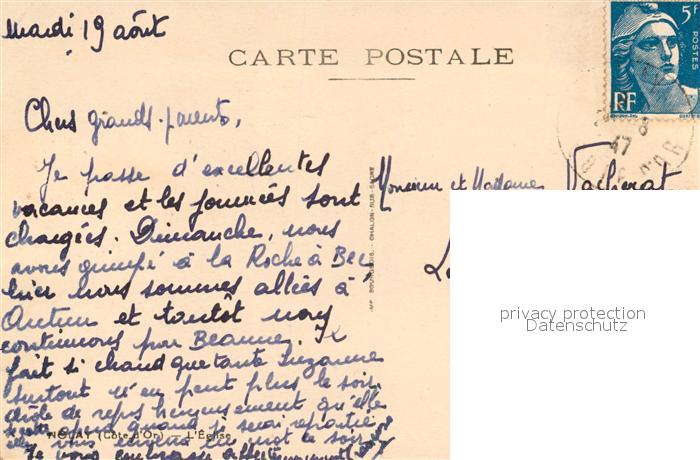 Mardi 19 août
CARTE POSTALE
5f
POSTES
RF
47
Chers grands-parents,
Je passe d'excellentes
vacances et les journées sont
chargées. Dimanche, nous
avons grimpé à la Roche à Bee
hier nous sommes allées à
Autun et tantôt nous
continuons par Beaune. Il
fait si chaud que tante Suzanne
surtout n'en peut plus le soir.
drôle de repos heureusement qu'elle
quand je serai repartie
elle vous écrira un mot ce soir
Je vous embrasse affectueusement
NOLAY (Côte-d'Or) — L'Église
IMP. BOURGEOIS. - CHALON-SUR-SAONE
Monsieur et Madame
privacy protection
Datenschutz